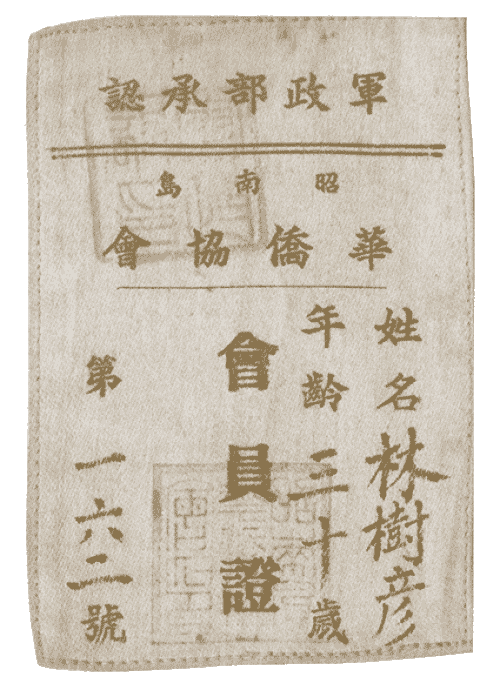 軍政部承認
昭南島
華僑協會
姓名林樹彦
年齡三十歲
會員證
第一六二號